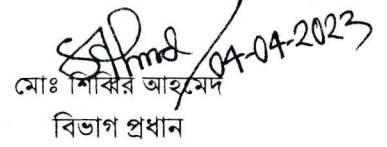 04-04-2023
মোঃ শিব্বির আহমেদ
বিভাগ প্রধান